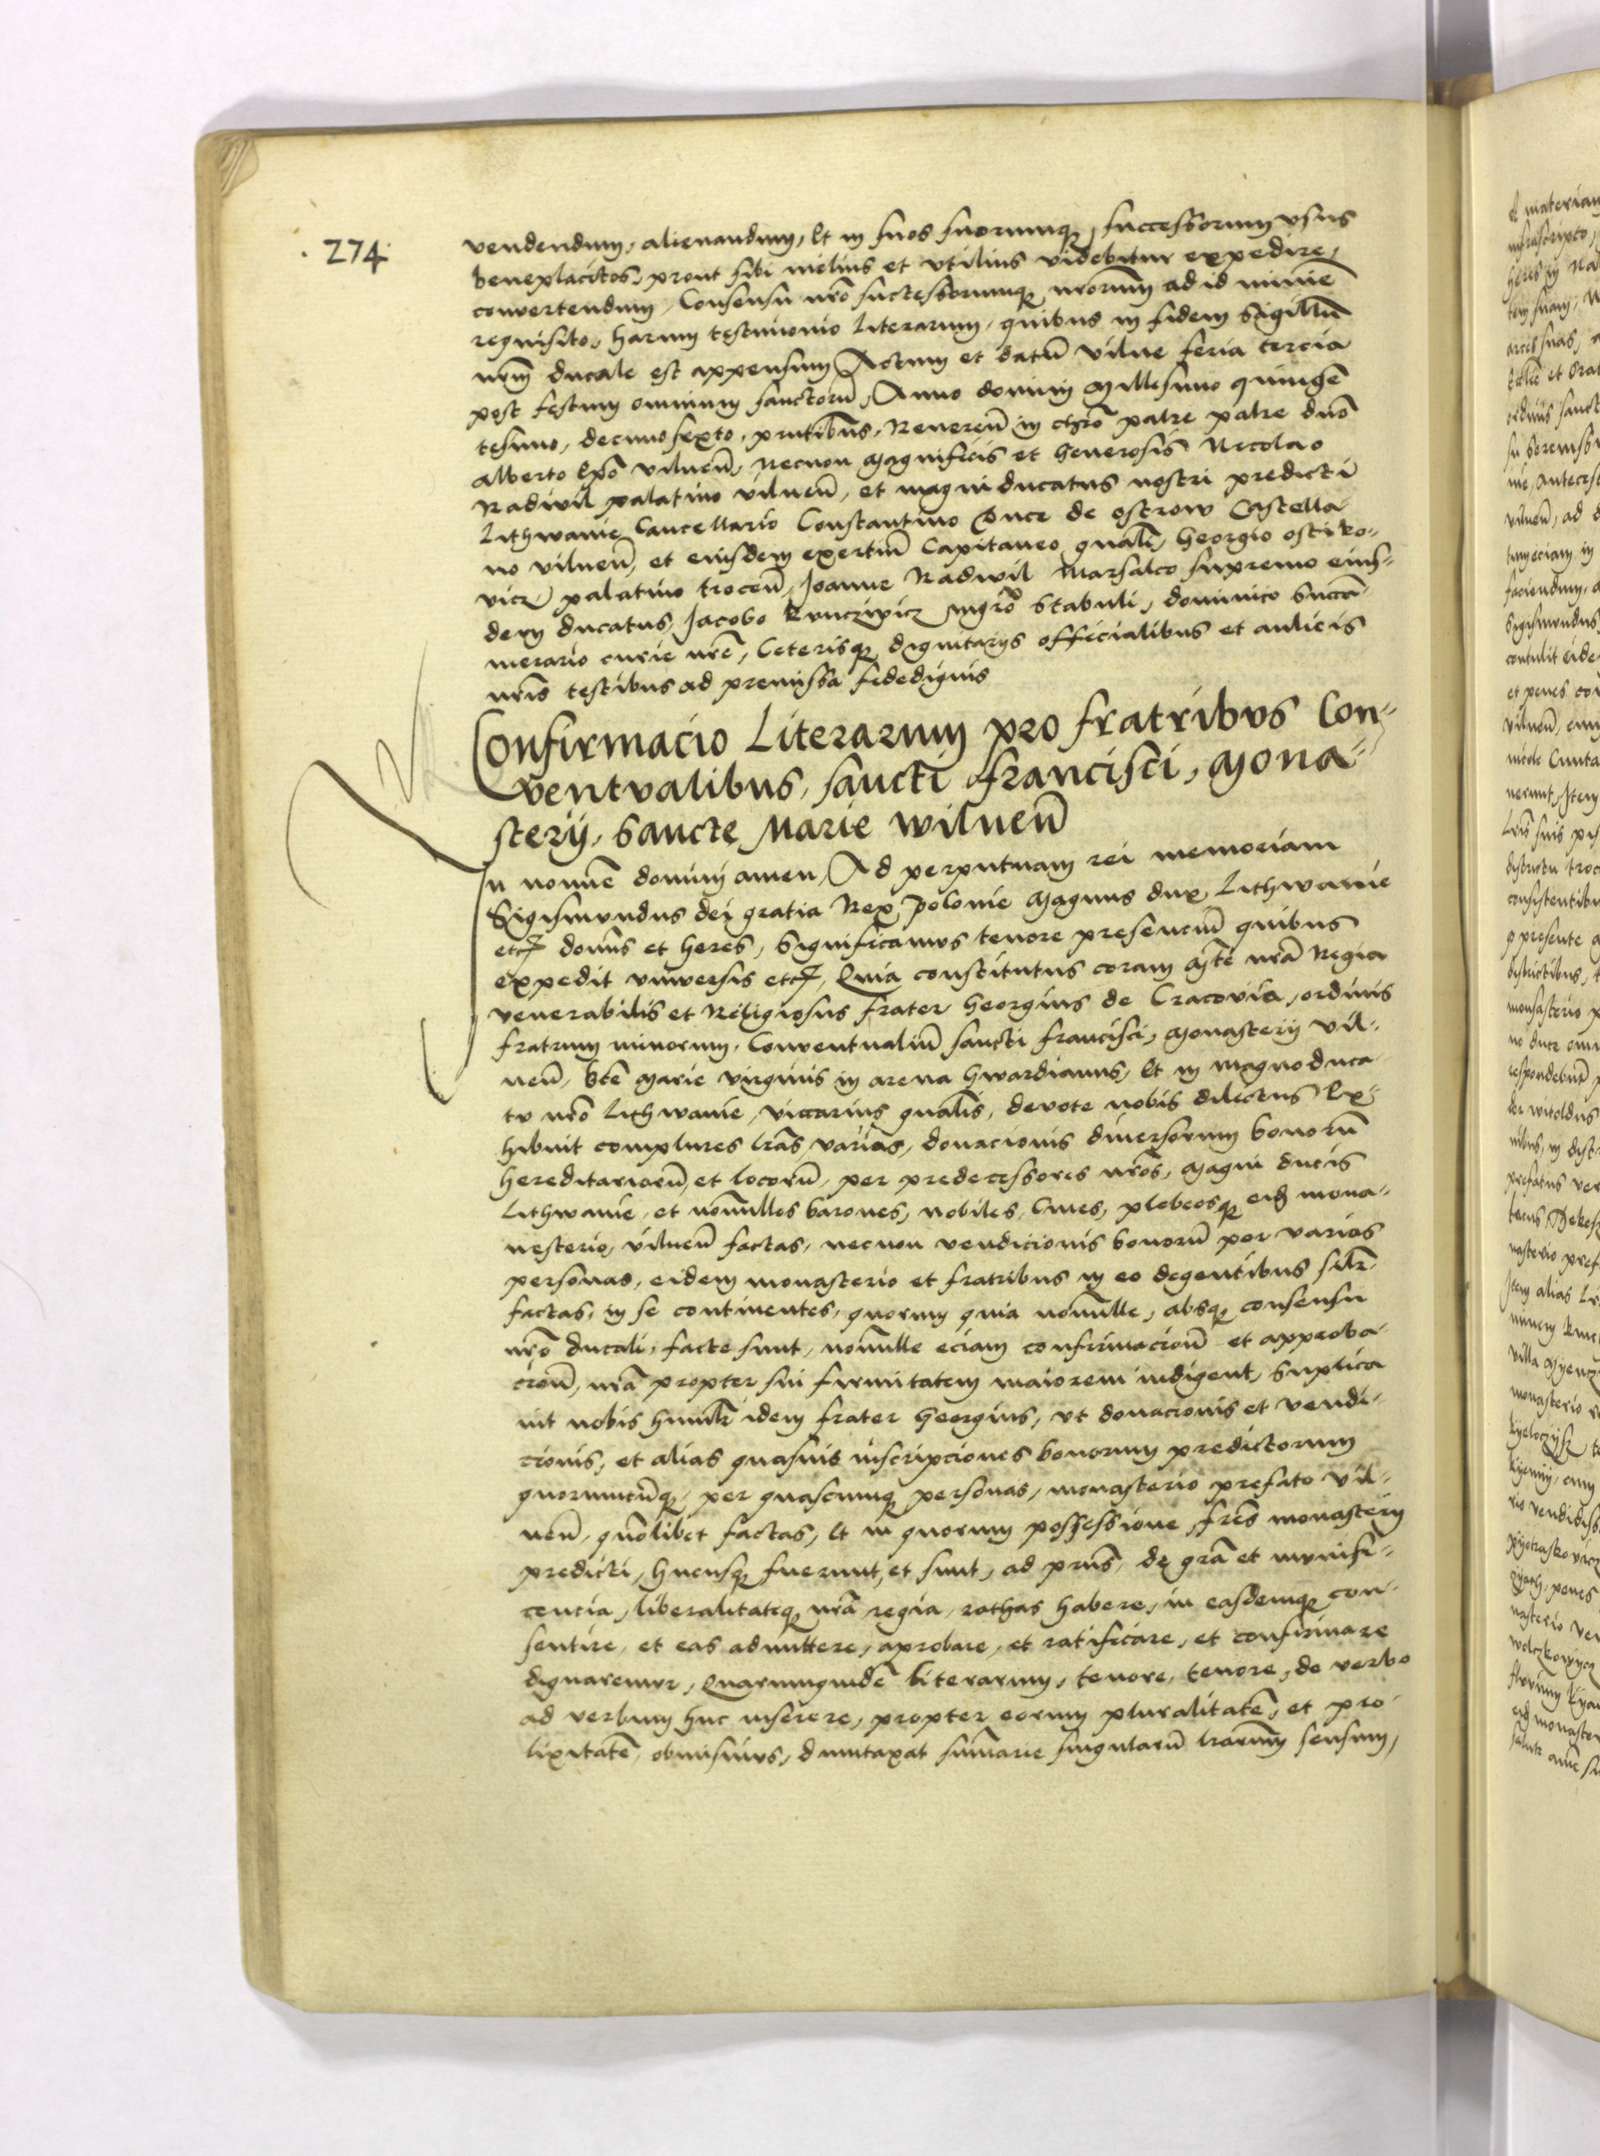 274
vendendum, alienandum, Et in suos suorumq, successorum usus
beneplacitos, prout sibi melius et utilius videbitur expedire,
convertendum, Consensu nro successorumq nrorum ad id minime
requisito, harum testimonio literarum, quibus in fidem sigillu
nrm ducale est appensum, Actum et datu vilne feria tercia
post festum omnium sanctoru, Anno domini Millesimo quingen
tesimo, decimo sexto, pntibus, Reveren in chro patre patre dno
Alberto Epo vilnen, Necnon Magnificis et Generosis Nicolao
Radwil palatino vilnen, et magni ducatus nostri predicti
Lithwanie Cancellario Constantino Duce de ostrow Castella
no vilnen, et eiusdem exercituu Capitaneo gnali, Georgio ostiko-
vicz palatino trocen, Joanne Radwil Marsalco supremo eius-
dem ducatus, Jacobo Kunczwicz mgro Stabuli, dominico Succa-
merario curie nre, Ceterisq dignitarijs officialibus et aulicis
nris testibus ad premissa fidedignis
Confirmacio Literarum pro fratribus Con-
ventualibus, sancti francisci, Mona-
sterij, Sancte Marie Wilnen
In nomine domini amen, Ad perpetuam rei memoriam
Sigismundus dei gratia Rex Polonie Magnus dux Lithwanie
etc domins et heres, Significamus tenore presencium quibus
expedit universis etc, Quia constitutus coram Mte nra Regia
venerabilis et Religiosus frater Georgius de Cracovia, ordinis
fratrum minorum, Conventualiu sancti francisci, Monasterij vil-
nen, bte Marie virginis in arena Gwardianus, Et in magno duca-
tu nro Lithwanie, viccarius gnalis, devote nobis dilectus Ex-
hibuit complures lras varias, donacionis diversorum bonoru
hereditarioru et locoru, per predecessores nros, Magni ducis
Lithwanie, et nonnullos barones, nobiles, Cives, plebeosq eid mona-
nesterio, vilnen factas, necnon vendicionis bonoru per varias
personas, eidem monasterio et fratribus in eo degentibus silr
factas, in se continentes, quorum quia nonnulle, absq consensu
nro ducali, facte sunt, nonnulle eciam confirmacion et approba-
cion, nra propter sui firmitatem maiorem indigent, Suplica
vit nobis humilr idem frater Georgius, ut donacionis et vendi-
cionis, et alias quasvis inscripciones bonorum predictorum
quorumcunq, per quascunq personas, monasterio prefato vil-
nen, quolibet factas, Et in quorum possessione, fres monasterij
predicti, hucusq fuerunt, et sunt, ad prns, de gra et munifi-
cencia, liberalitateq nra regia, rathas habere, in easdemq con-
sentire, et eas admittere, aprobare, et ratificare, et confirmare
dignaremur, Quarumquide literarum, tenore, tenore, de verbo
ad verbum huc inserere, propter eorum pluralitate, et pro-
lixitate, obmisimus, dumtaxat sumarie singularu lrarum sensum,